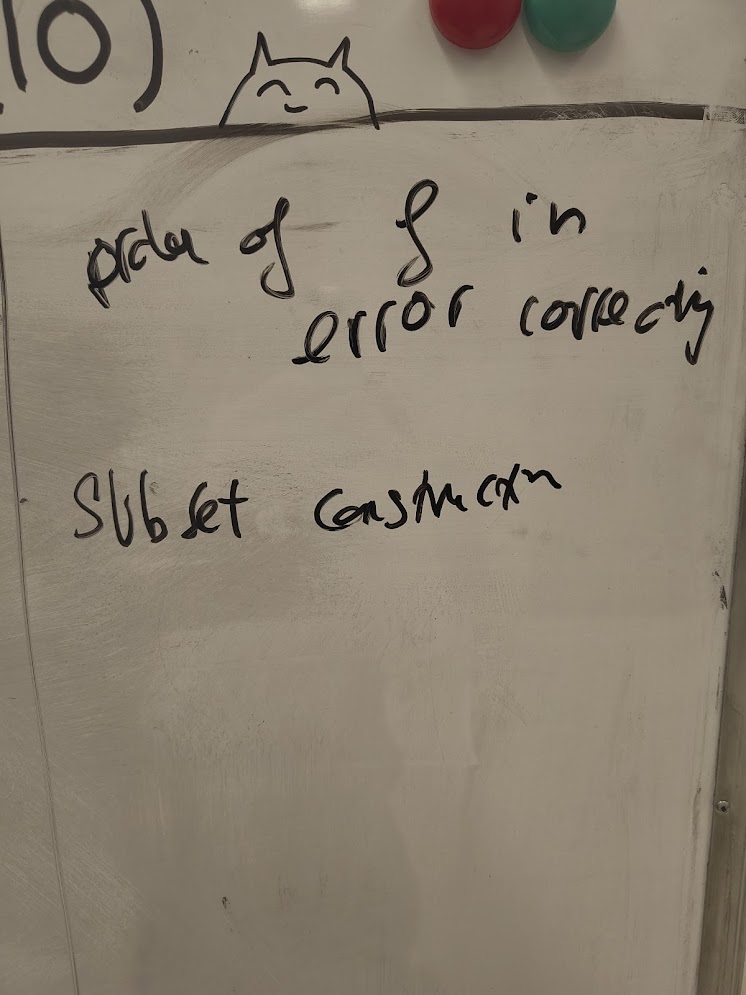 10)
order of f in
error correcting
subset construction